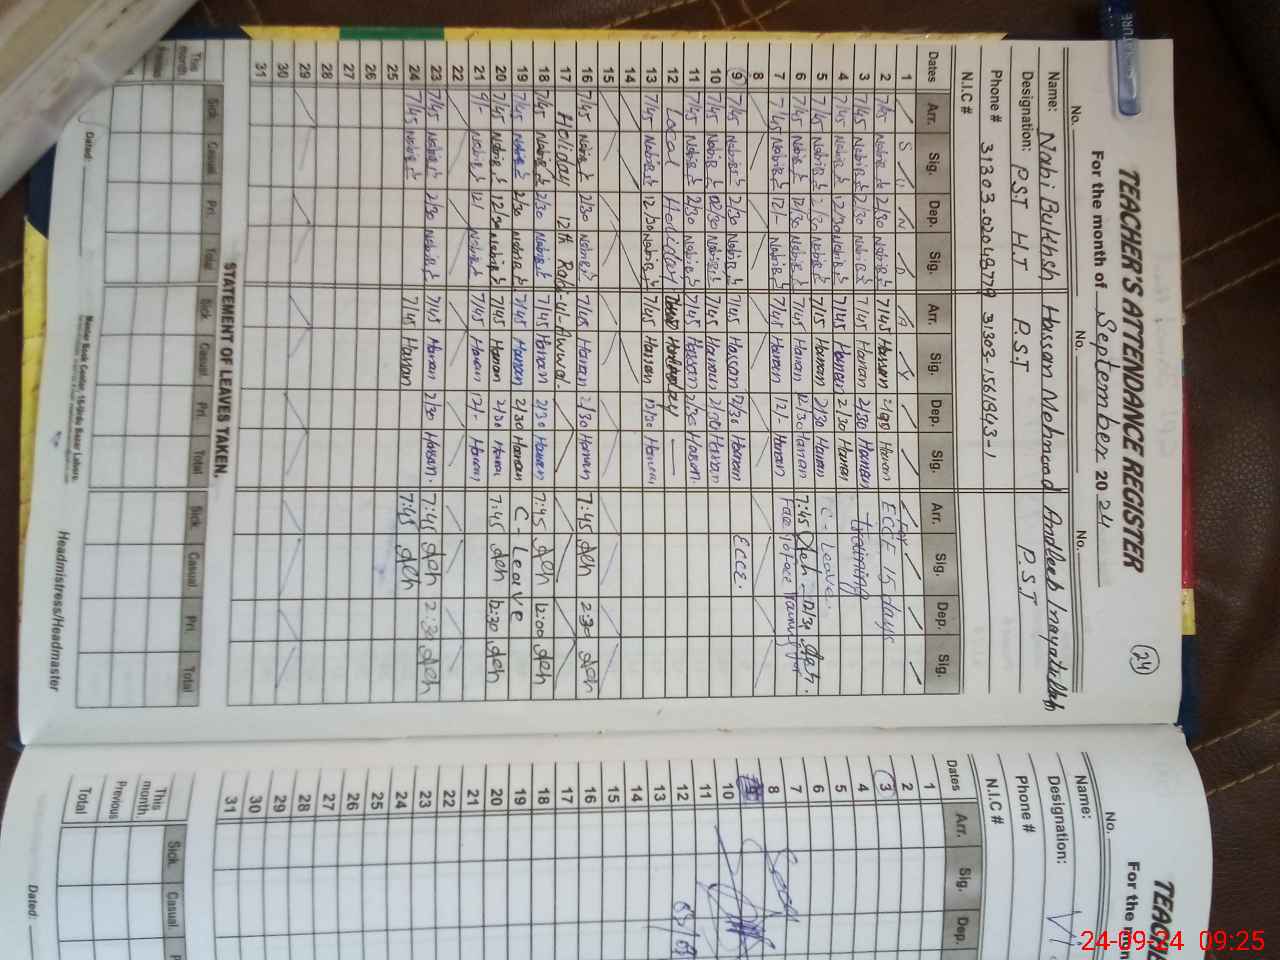 TEACHER'S ATTENDANCE REGISTER
24
For the month of September 2024
No. No. No.
Name: Nabi Bukhsh Hassan Mehmood Andleeb Inayatullah
Designation: P.S.T H.T P.S.T P.S.T
Phone # 31303-02048779 31303-1561843-1
N.I.C #
Dates Arr. Sig. Dep. Sig. Arr. Sig. Dep. Sig. Arr. Sig. Dep. Sig.
1 S U N D A Y
2 7/45 Nabi 2/30 Nabi 7/45 Hassan Hassan For ECCE 15 days
3 7/45 Nabi 2/30 Nabi 7/45 Hassan 2/30 Hassan training
4 7/45 Nabi 2/30 Nabi 7/45 Hassan 2/30 Hassan
5 7/45 Nabi 2/30 Nabi 7/15 Hassan 2/30 Hassan C-Leave
6 7/45 Nabi 12/30 Nabi 7/45 Hassan 12/30 Hassan 7:45 12/30
7 7/45 Nabi 12/- Nabi 7/45 Hassan 12/- Hassan Face to Face Training for
8
9 7/45 Nabi 2/30 Nabi 7/45 Hassan 2/30 Hassan ECCE.
10 7/45 Nabi 2/30 Nabi 7/45 Hassan 2/30 Hassan
11 7/45 Nabi 2/30 Nabi 7/45 Hassan 2/30 Hassan
12 Local Holiday
13 7/45 Nabi 12/30 Nabi 7/45 Hassan 12/30 Hassan
14
15
16 7/45 Nabi 2/30 Nabi 7/45 Hassan 2/30 Hassan 7:45 2:30
17 Holiday 12th Rabi-ul-Awwal
18 7/45 Nabi 2/30 Nabi 7/45 Hassan 2/30 Hassan 7:45 12:00
19 7/45 Nabi 2/30 Nabi 7/45 Hassan 2/30 Hassan C-Leave
20 7/45 Nabi 12/30 Nabi 7/45 Hassan 2/30 Hassan 7:45 12:30
21 9/- Nabi 12/ Nabi 7/45 Hassan 12/- Hassan
22
23 7/45 Nabi 2/30 Nabi 7/45 Hassan 2/30 Hassan 7:45 2:30
24 7/45 Nabi 7/45 Hassan 7:45
25
26
27
28
29
30
31
STATEMENT OF LEAVES TAKEN.
Sick Casual Pri. Total Sick Casual. Pri. Total Sick. Casual. Pri. Total
This month
Previous
Dated:
Master Book Center, 16-Urdu Bazar Lahore.
Headmistress/Headmaster
TEACHE
For the mon
No.
Name:
Designation:
Phone #
N.I.C #
Dates Arr. Sig. Dep.
1
2
3
4
5
6
7
8
9
10
11
12
13
14
15
16
17
18
19
20
21
22
23
24
25
26
27
28
29
30
31
Sick. Casual. P
This month
Previous
Total
Dated:
24-09-24 09:25